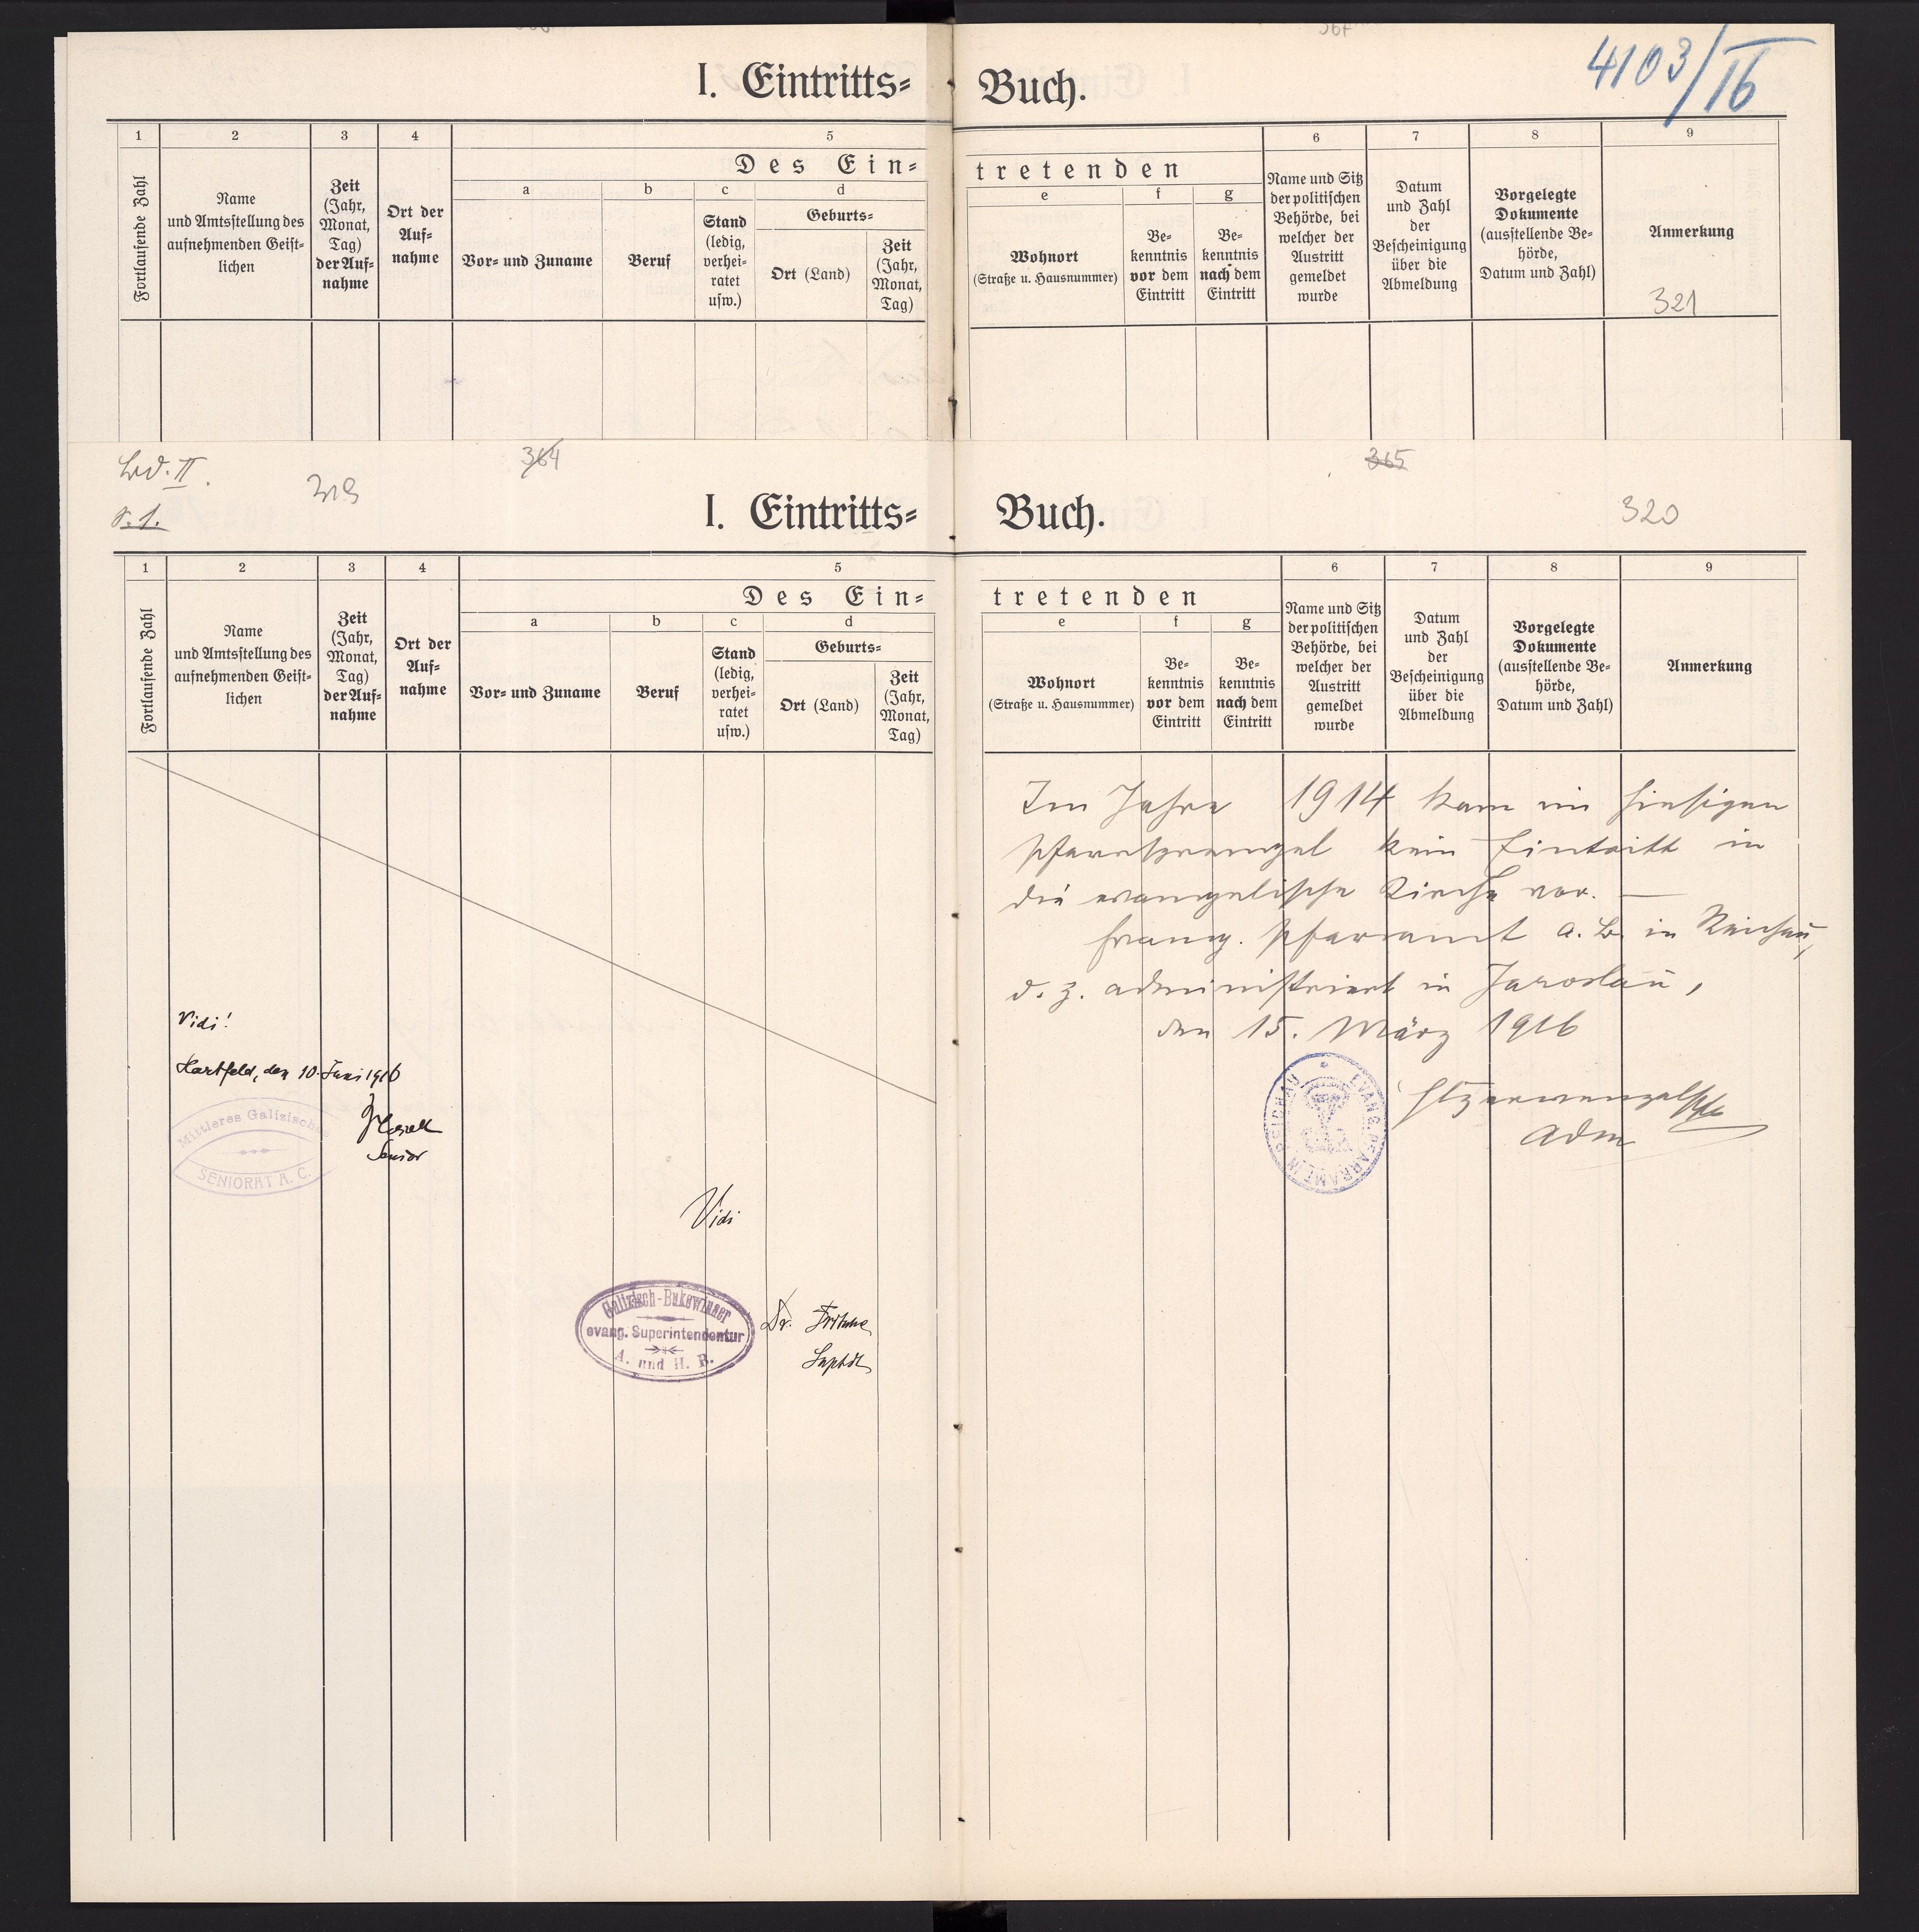 4103/16
I. Eintritts= Buch.
1 2 3 4 5 6 7 8 9
Des Ein= tretenden
a b c d e f g
Fortlaufende Zahl
Name
und Amtsstellung des
aufnehmenden Geist-
lichen
Zeit
(Jahr,
Monat,
Tag)
der Auf=
nahme
Ort der
Auf=
nahme
Vor= und Zuname
Beruf
Stand
(ledig,
verhei=
ratet
usw.)
Geburts=
Ort (Land)
Zeit
(Jahr,
Monat,
Tag)
Wohnort
(Straße u. Hausnummer)
Be-
kenntnis
vor dem
Eintritt
Be-
kenntnis
nach dem
Eintritt
Name und Sitz
der politischen
Behörde, bei
welcher der
Austritt
gemeldet
wurde
Datum
und Zahl
der
Bescheinigung
über die
Abmeldung
Vorgelegte
Dokumente
(ausstellende Be-
hörde,
Datum und Zahl)
Anmerkung
321
Bd. II.
S. 1.
319
364
365
320
I. Eintritts= Buch.
1 2 3 4 5 6 7 8 9
Des Ein= tretenden
a b c d e f g
Fortlaufende Zahl
Name
und Amtsstellung des
aufnehmenden Geist-
lichen
Zeit
(Jahr,
Monat,
Tag)
der Auf=
nahme
Ort der
Auf=
nahme
Vor= und Zuname
Beruf
Stand
(ledig,
verhei=
ratet
usw.)
Geburts=
Ort (Land)
Zeit
(Jahr,
Monat,
Tag)
Wohnort
(Straße u. Hausnummer)
Be-
kenntnis
vor dem
Eintritt
Be-
kenntnis
nach dem
Eintritt
Name und Sitz
der politischen
Behörde, bei
welcher der
Austritt
gemeldet
wurde
Datum
und Zahl
der
Bescheinigung
über die
Abmeldung
Vorgelegte
Dokumente
(ausstellende Be-
hörde,
Datum und Zahl)
Anmerkung
Im Jahre 1914 kam im hiesigen
Pfarrsprengel kein Eintritt in
die evangelische Kirche vor. —
Evang. Pfarramt A. B. in Reichau,
d. z. administriert in Jaroslau,
den 15. März 1916
Adm
EVANG. PFARRAMT IN REICHAU
Vidi!
Hartfeld, den 10. Juni 1916
Senior
Mittleres Galizisches
SENIORAT A. C.
Vidi
Galizisch-Bukowinaer
evang. Superintendentur
A. und H. B.
Dr. Fritsche
Suptdt